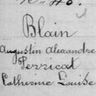 Blain
Augustin Alexandre
Perricat
Catherine Louise